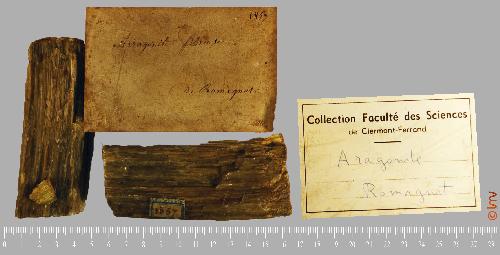 Arragonite fibreuse
de Romagnat.
Collection Faculté des Sciences
de Clermont-Ferrand
Aragonite
Romagnat
0 1 2 3 4 5 6 7 8 9 10 11 12 13 14 15 16 17 18 19 20 21 22 23 24 25 26 27 28